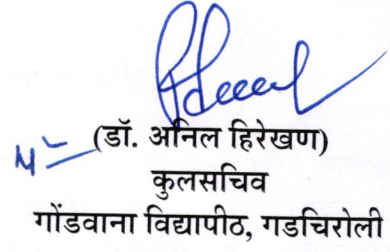 (डॉ. अनिल हिरेखण)
कुलसचिव
गोंडवाना विद्यापीठ, गडचिरोली